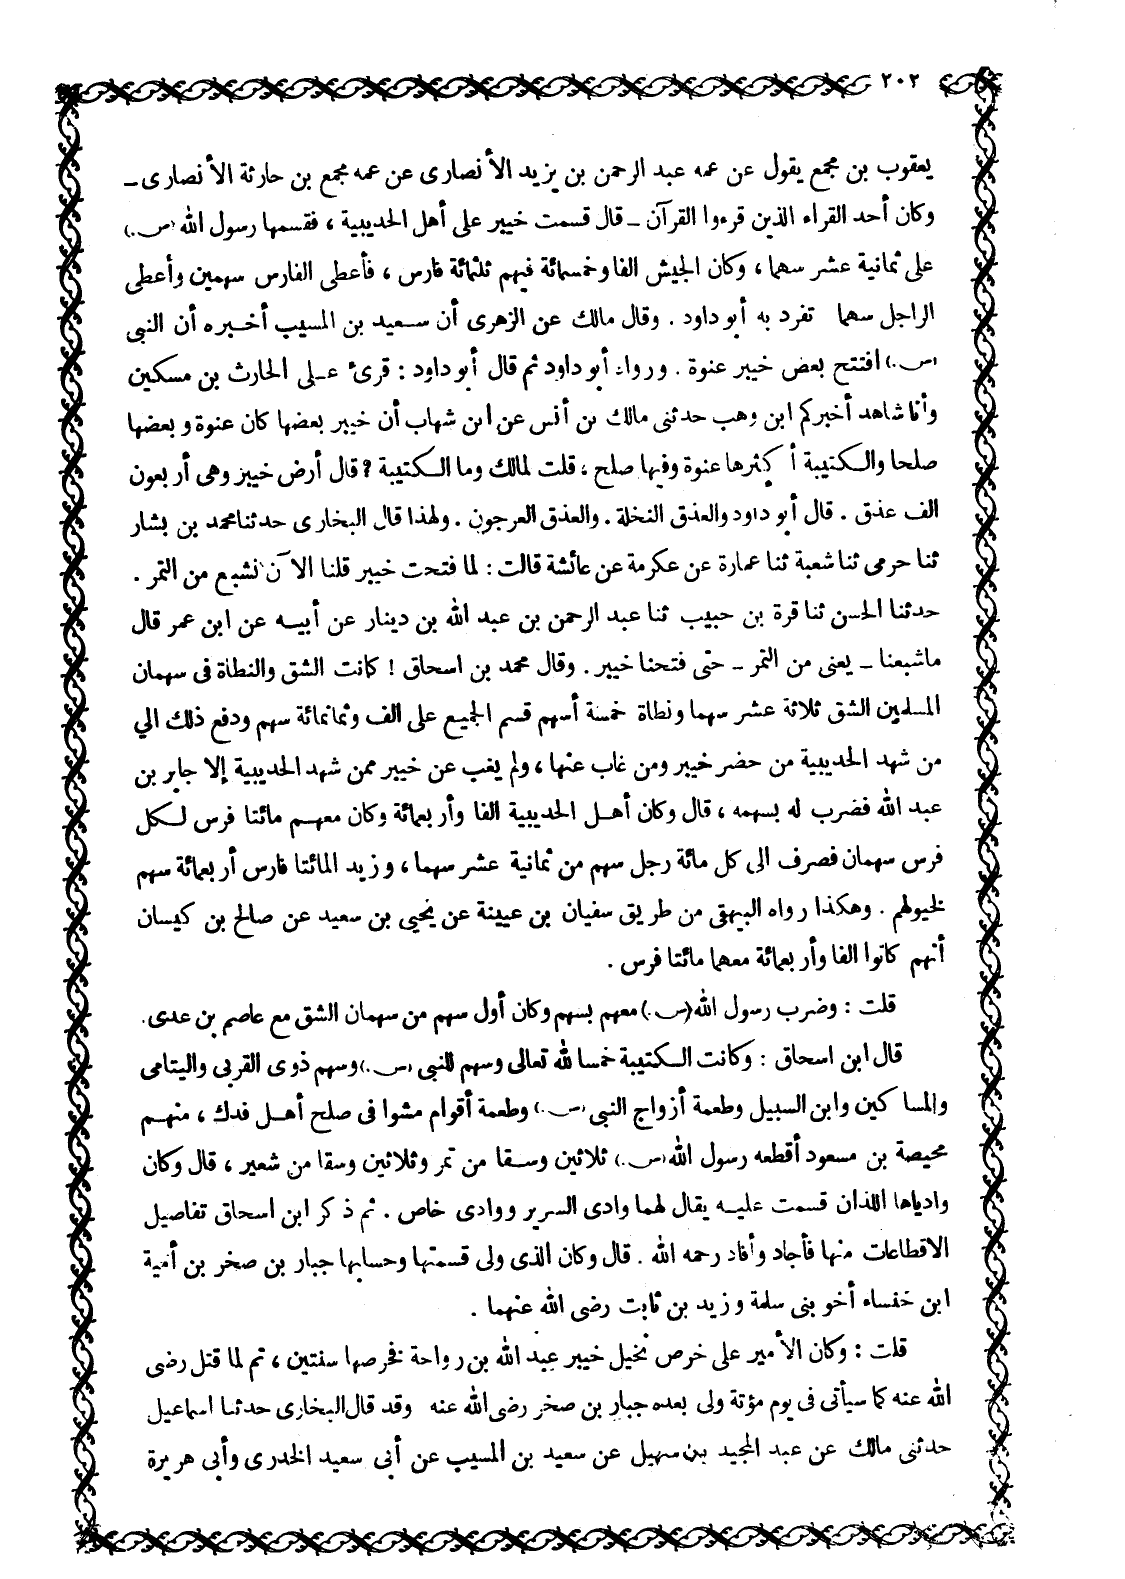 ٢٠٢
يعقوب بن مجمع يقول عن عمه عبد الرحمن بن يزيد الأنصارى عن عمه مجمع بن حارثة الأنصارى ـ
وكان أحد القراء الذين قرءوا القرآن ـ قال قسمت خيبر على أهل الحديبية ، فقسمها رسول الله (ص.)
على ثمانية عشر سهما ، وكان الجيش الفا وخمسمائة فيهم ثلثمائة فارس ، فأعطى الفارس سهمين وأعطى
الراجل سهما تفرد به أبو داود . وقال مالك عن الزهرى أن سعيد بن المسيب أخبره أن النبى
(ص.) افتتح بعض خيبر عنوة . ورواه أبو داود ثم قال أبو داود : قرئ على الحارث بن مسكين
وأنا شاهد أخبركم ابن وهب حدثنى مالك بن أنس عن ابن شهاب أن خيبر بعضها كان عنوة و بعضها
صلحا والكتيبة أكثرها عنوة وفيها صلح ، قلت لمالك وما الكتيبة ? قال أرض خيبر وهى أربعون
الف عذق . قال أبو داود والعذق النخلة . والعذق العرجون . ولهذا قال البخارى حدثنا محمد بن بشار
ثنا حرمى ثنا شعبة ثنا عمارة عن عكرمة عن عائشة قالت : لما فتحت خيبر قلنا الآن نشبع من التمر .
حدثنا الحسن ثنا قرة بن حبيب ثنا عبد الرحمن بن عبد الله بن دينار عن أبيه عن ابن عمر قال
ماشبعنا ـ يعنى من التمر ـ حتى فتحنا خيبر . وقال محمد بن اسحاق ! كانت الشق والنطاة فى سهمان
المسلمين الشق ثلاثة عشر سهما ونطاة خمسة أسهم قسم الجميع على الف وثمانمائة سهم ودفع ذلك الي
من شهد الحديبية من حضر خيبر ومن غاب عنها ، ولم يغب عن خيبر ممن شهد الحديبية إلا جابر بن
عبد الله فضرب له بسهمه ، قال وكان أهل الحديبية الفا وأربعمائة وكان معهم مائتا فرس لكل
فرس سهمان فصرف الى كل مائة رجل سهم من ثمانية عشر سهما ، وزيد المائتا فارس أربعمائة سهم
لخيولهم . وهكذا رواه البيهقى من طريق سفيان بن عيينة عن يحيى بن سعيد عن صالح بن كيسان
أنهم كانوا الفا وأربعمائة معهما مائتا فرس .
قلت : وضرب رسول الله (ص.) معهم بسهم وكان أول سهم من سهمان الشق مع عاصم بن عدى .
قال ابن اسحاق : وكانت الكتيبة خمسا لله تعالى وسهم للنبى (ص.) وسهم ذوى القربى واليتامى
والمساكين وابن السبيل وطعمة أزواج النبى (ص.) وطعمة أقوام مشوا فى صلح أهل فدك ، منهم
محيصة بن مسعود أقطعه رسول الله (ص.) ثلاثين وسقا من تمر وثلاثين وسقا من شعير ، قال وكان
وادياها اللذان قسمت عليه يقال لهما وادى السرير ووادى خاص . ثم ذكر ابن اسحاق تفاصيل
الاقطاعات منها فأجاد وأفاد رحمه الله . قال وكان الذى ولى قسمتها وحسابها جبار بن صخر بن أمية
ابن خنساء أخو بنى سلمة وزيد بن ثابت رضى الله عنهما .
قلت : وكان الأمير على خرص نخيل خيبر عبد الله بن رواحة فخرصها سنتين ، ثم لما قتل رضى
الله عنه كما سيأتى فى يوم مؤتة ولى بعده جبار بن صخر رضى الله عنه وقد قال البخارى حدثنا اسماعيل
حدثنى مالك عن عبد المجيد بن سهيل عن سعيد بن المسيب عن أبى سعيد الخدرى وأبى هريرة